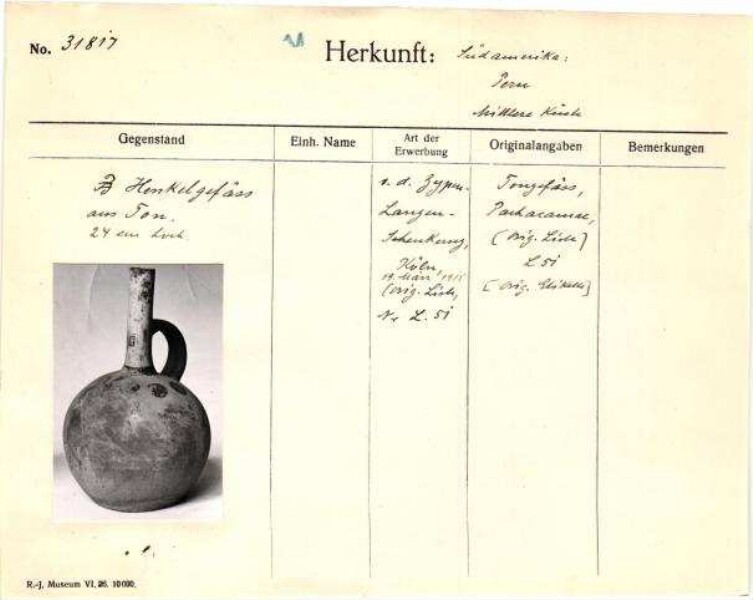 No. 31817
Herkunft: Südamerika:
Peru
Mittlere Küste
Gegenstand
Einh. Name
Art der
Erwerbung
Originalangaben
Bemerkungen
Henkelgefäss
aus Ton.
24 cm hoch.
v. d. Zypen-
Langen-
Schenkung,
Köln,
1915
(orig. Liste,
Nr L. 51
Tongefäss,
Pachacamac,
(orig. Liste)
L 51
(orig. Etikette)
R.-J. Museum VI. 26. 10000.